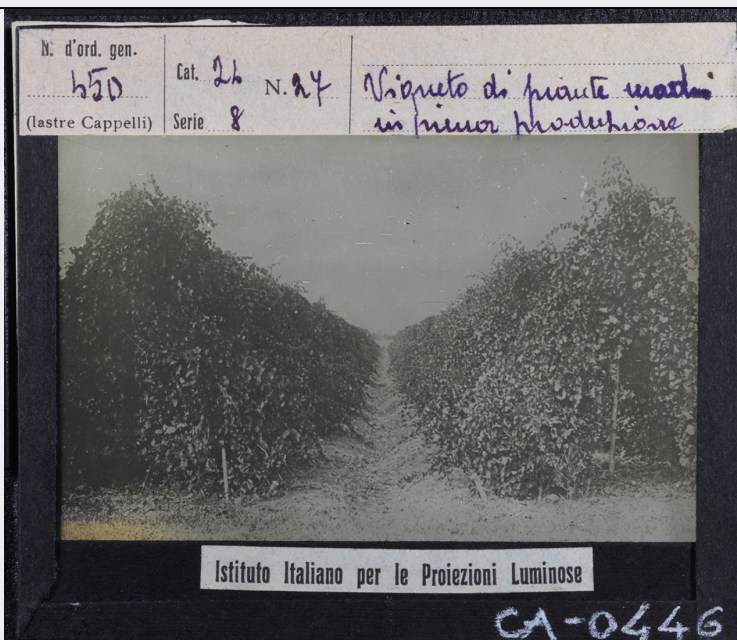 N. d'ord. gen.
450
(lastre Cappelli)
Cat. 2b
Serie 8
N. 27
Vigneto di piante madri
in piena produzione
Istituto Italiano per le Proiezioni Luminose
CA-0446